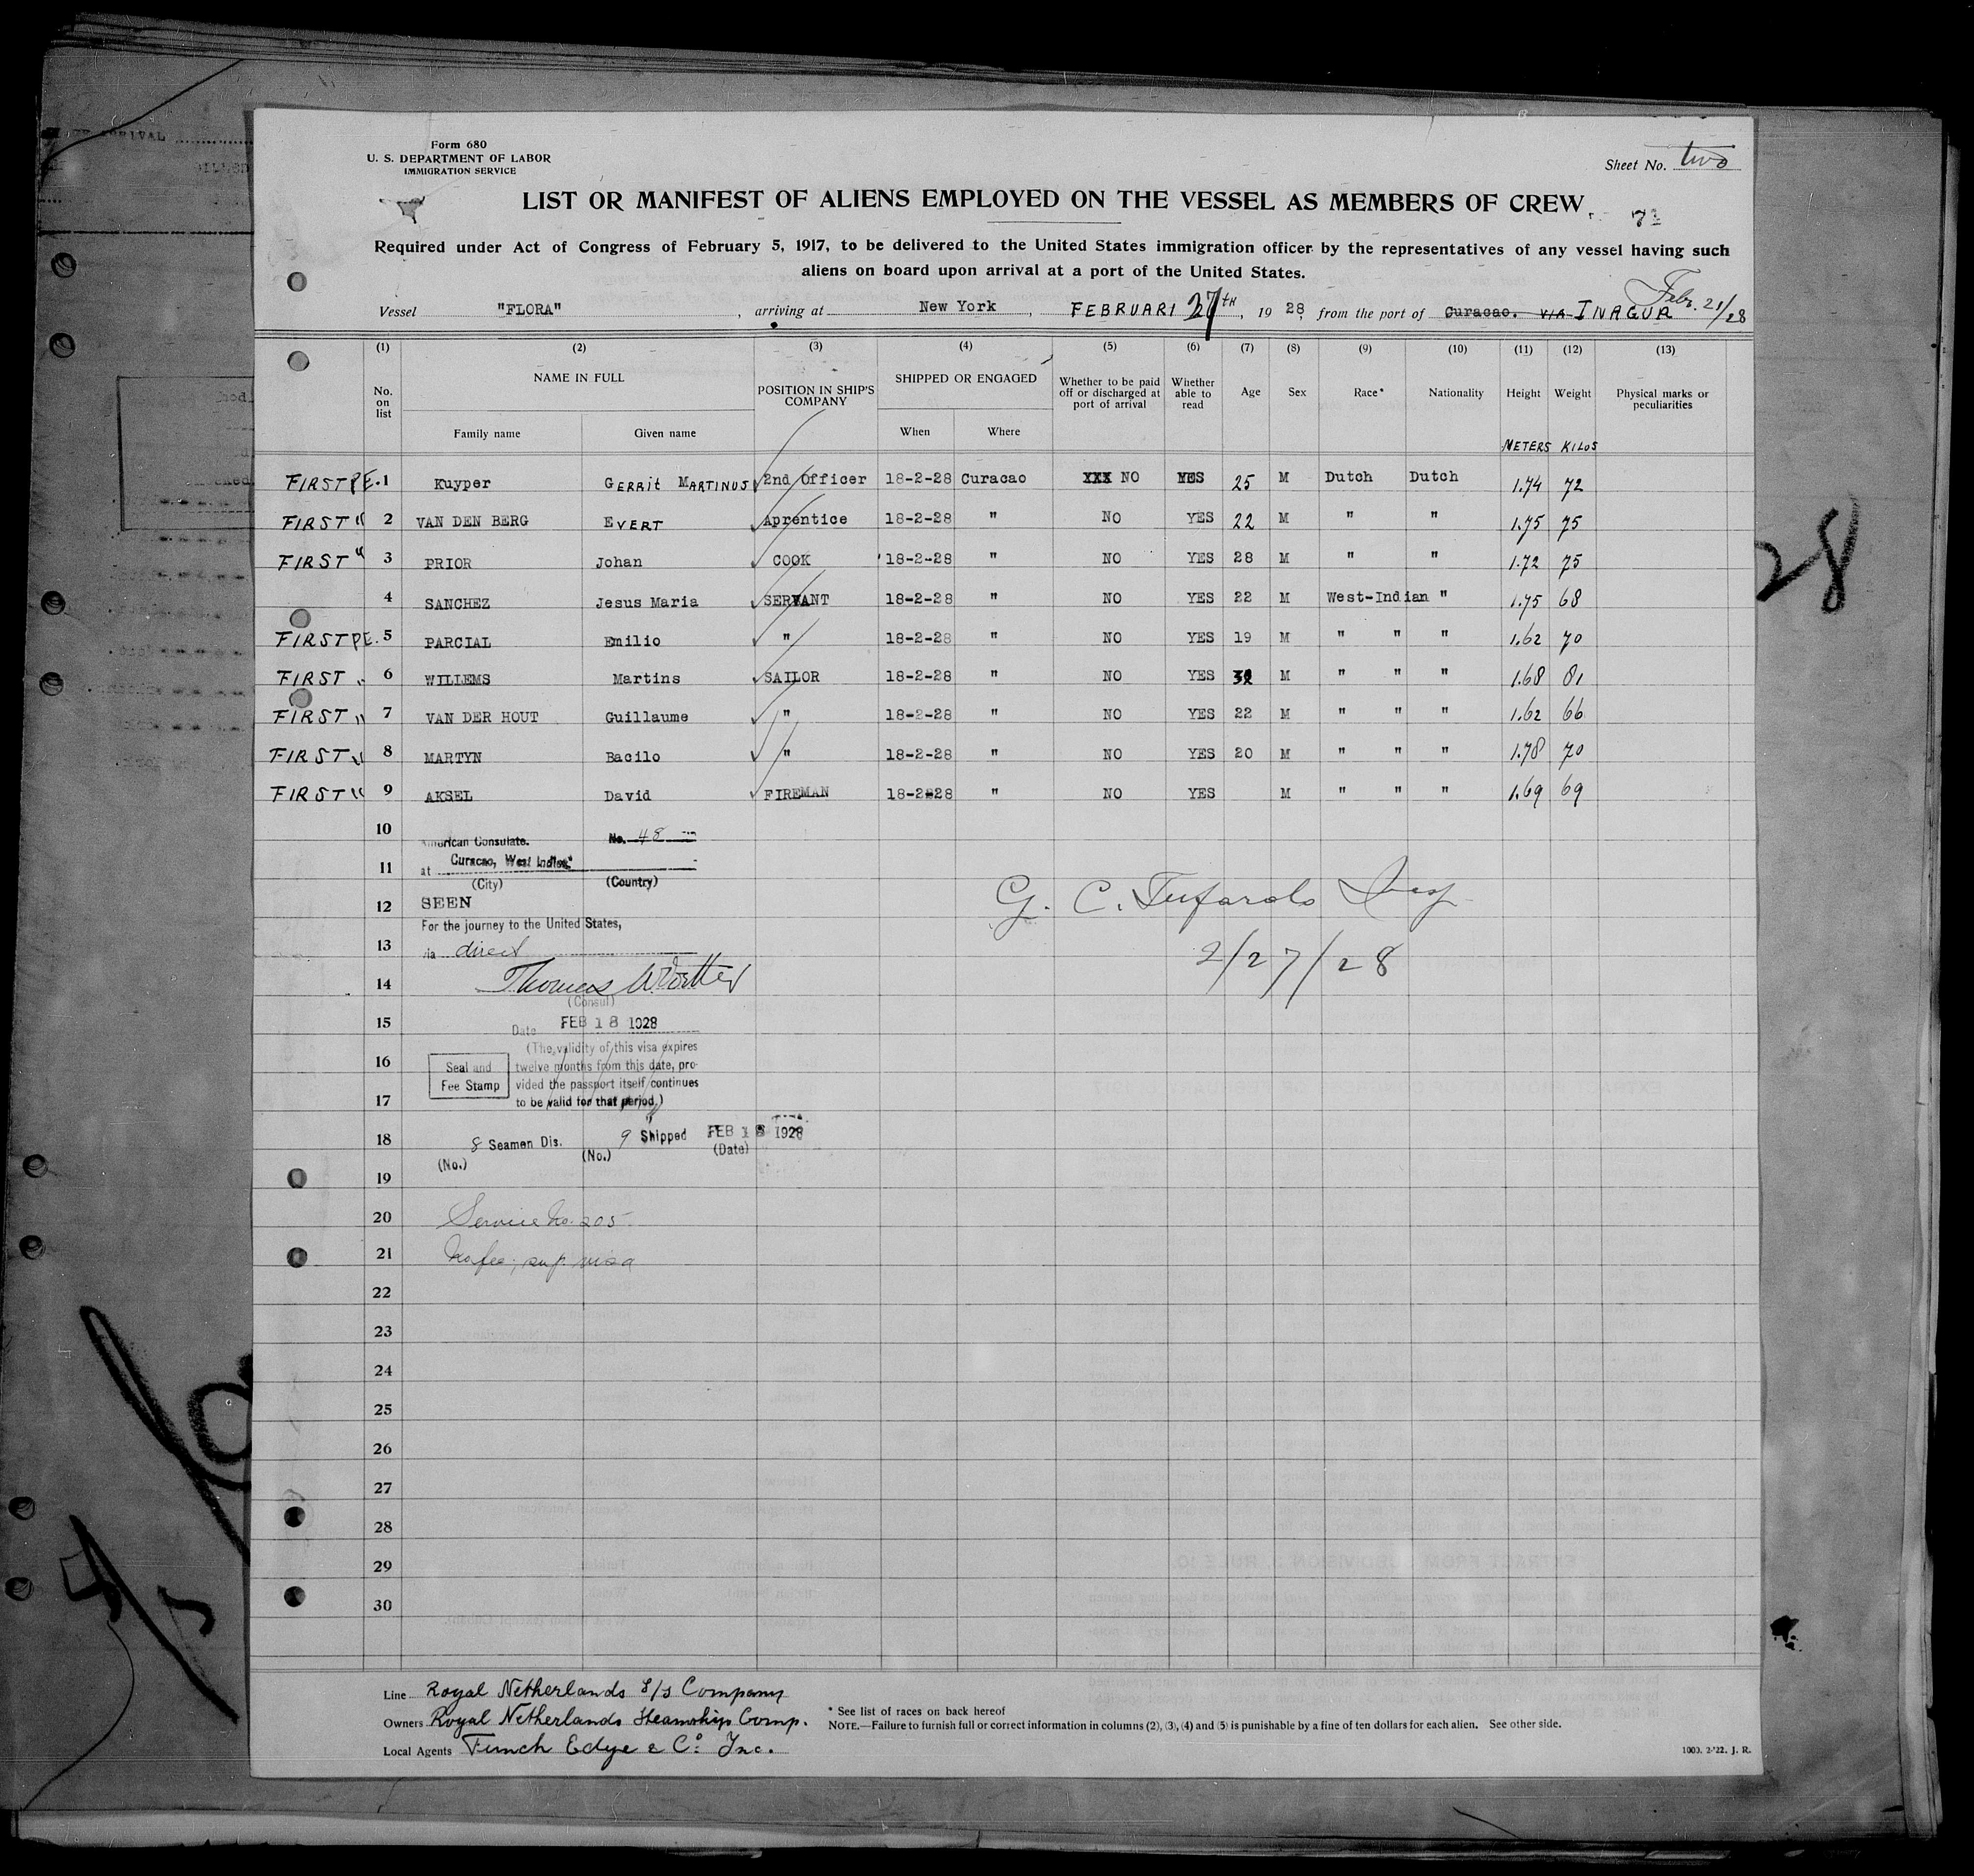 Form 680
U. S. DEPARTMENT OF LABOR
IMMIGRATION SERVICE
Sheet No. two
LIST OR MANIFEST OF ALIENS EMPLOYED ON THE VESSEL AS MEMBERS OF CREW
Required under Act of Congress of February 5, 1917, to be delivered to the United States immigration officer by the representatives of any vessel having such
aliens on board upon arrival at a port of the United States.
Febr. 21/28
Vessel "FLORA", arriving at New York, FEBRUARI 27th, 1928, from the port of Curacao. VIA INAGUA
(1) (2) (3) (4) (5) (6) (7) (8) (9) (10) (11) (12) (13)
No. on list NAME IN FULL Family name Given name POSITION IN SHIP'S COMPANY SHIPPED OR ENGAGED When Where Whether to be paid off or discharged at port of arrival Whether able to read Age Sex Race* Nationality Height Weight Physical marks or peculiarities
METERS KILOS
FIRST PE. 1 Kuyper GERRit MARTINUS 2nd Officer 18-2-28 Curacao XXX NO YES 25 M Dutch Dutch 1.74 72
FIRST " 2 VAN DEN BERG EVERT Aprentice 18-2-28 " NO YES 22 M " " 1.75 75
FIRST " 3 PRIOR Johan COOK 18-2-28 " NO YES 28 M " " 1.72 75
4 SANCHEZ Jesus Maria SERVANT 18-2-28 " NO YES 22 M West-Indian " 1.75 68
FIRST PE. 5 PARCIAL Emilio " 18-2-28 " NO YES 19 M " " " 1.62 70
FIRST " 6 WILLEMS Martins SAILOR 18-2-28 " NO YES M " " " 1.68 81
FIRST " 7 VAN DER HOUT Guillaume " 18-2-28 " NO YES 22 M " " " 1.62 66
FIRST " 8 MARTYN Bacilo " 18-2-28 " NO YES 20 M " " " 1.78 70
FIRST " 9 AKSEL David FIREMAN 18-2-28 " NO YES M " " " 1.69 69
10
American Consulate. No. 48
11
at Curacao, West Indies
(City) (Country)
12 SEEN
G. C. Tufarolo Insp
For the journey to the United States,
13 via direct
2/27/28
14 Thomas W Voetter
(Consul)
15 Date FEB 18 1928
(The validity of this visa expires
16 Seal and Fee Stamp twelve months from this date, pro-
vided the passport itself continues
17 to be valid for that period.)
18 8 Seamen Dis. 9 Shipped FEB 18 1928
(No.) (No.) (Date)
19
20 Service No. 205
21 No fee; sup. visa
22
23
24
25
26
27
28
29
30
Line Royal Netherlands S/S Company
Owners Royal Netherlands Steamship Comp.
Local Agents Funch Edye & Co. Inc.
* See list of races on back hereof
NOTE.—Failure to furnish full or correct information in columns (2), (3), (4) and (5) is punishable by a fine of ten dollars for each alien. See other side.
1000. 2-'22. J. R.
28